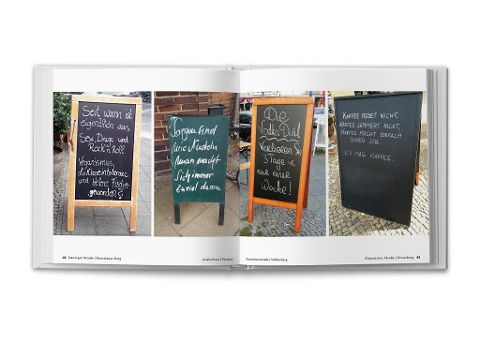 Seit wann ist
eigentlich aus
Sex, Drugs und
Rock'n Roll
Veganismus,
Laktoseintoleranz
und Helene Fischer
geworden?
Sorgen sind
wie Nudeln
man macht
sich immer
zuviel davon
Die
Vodka Diät
Verlieren Sie
3 Tage in
nur einer
Woche!
KAFFEE REDET NICHT,
KAFFEE JAMMERT NICHT,
KAFFEE MACHT EINFACH
SEINEN JOB.
ICH MAG KAFFEE.
Danziger Straße | Prenzlauer Berg